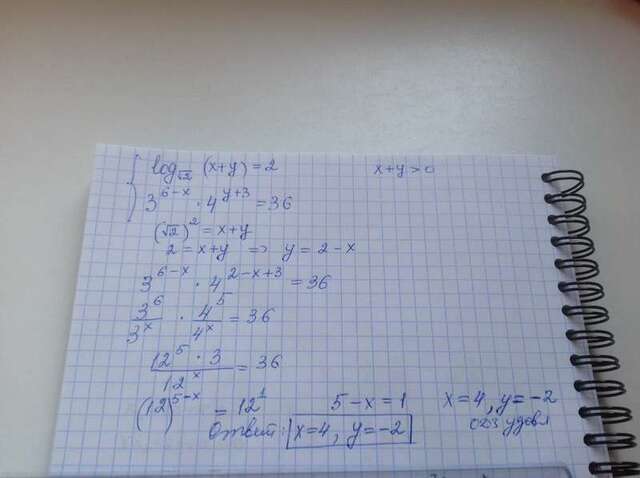 log_√2 (x+y) = 2 x+y>0
3^(6-x) · 4^(y+3) = 36
(√2)^2 = x+y
2 = x+y => y = 2-x
3^(6-x) · 4^(2-x+3) = 36
3^6/3^x · 4^5/4^x = 36
12^5 · 3/12^x = 36
(12)^(5-x) = 12^1 5-x = 1 x=4, y=-2
Ответ: x=4, y=-2 одз удовл